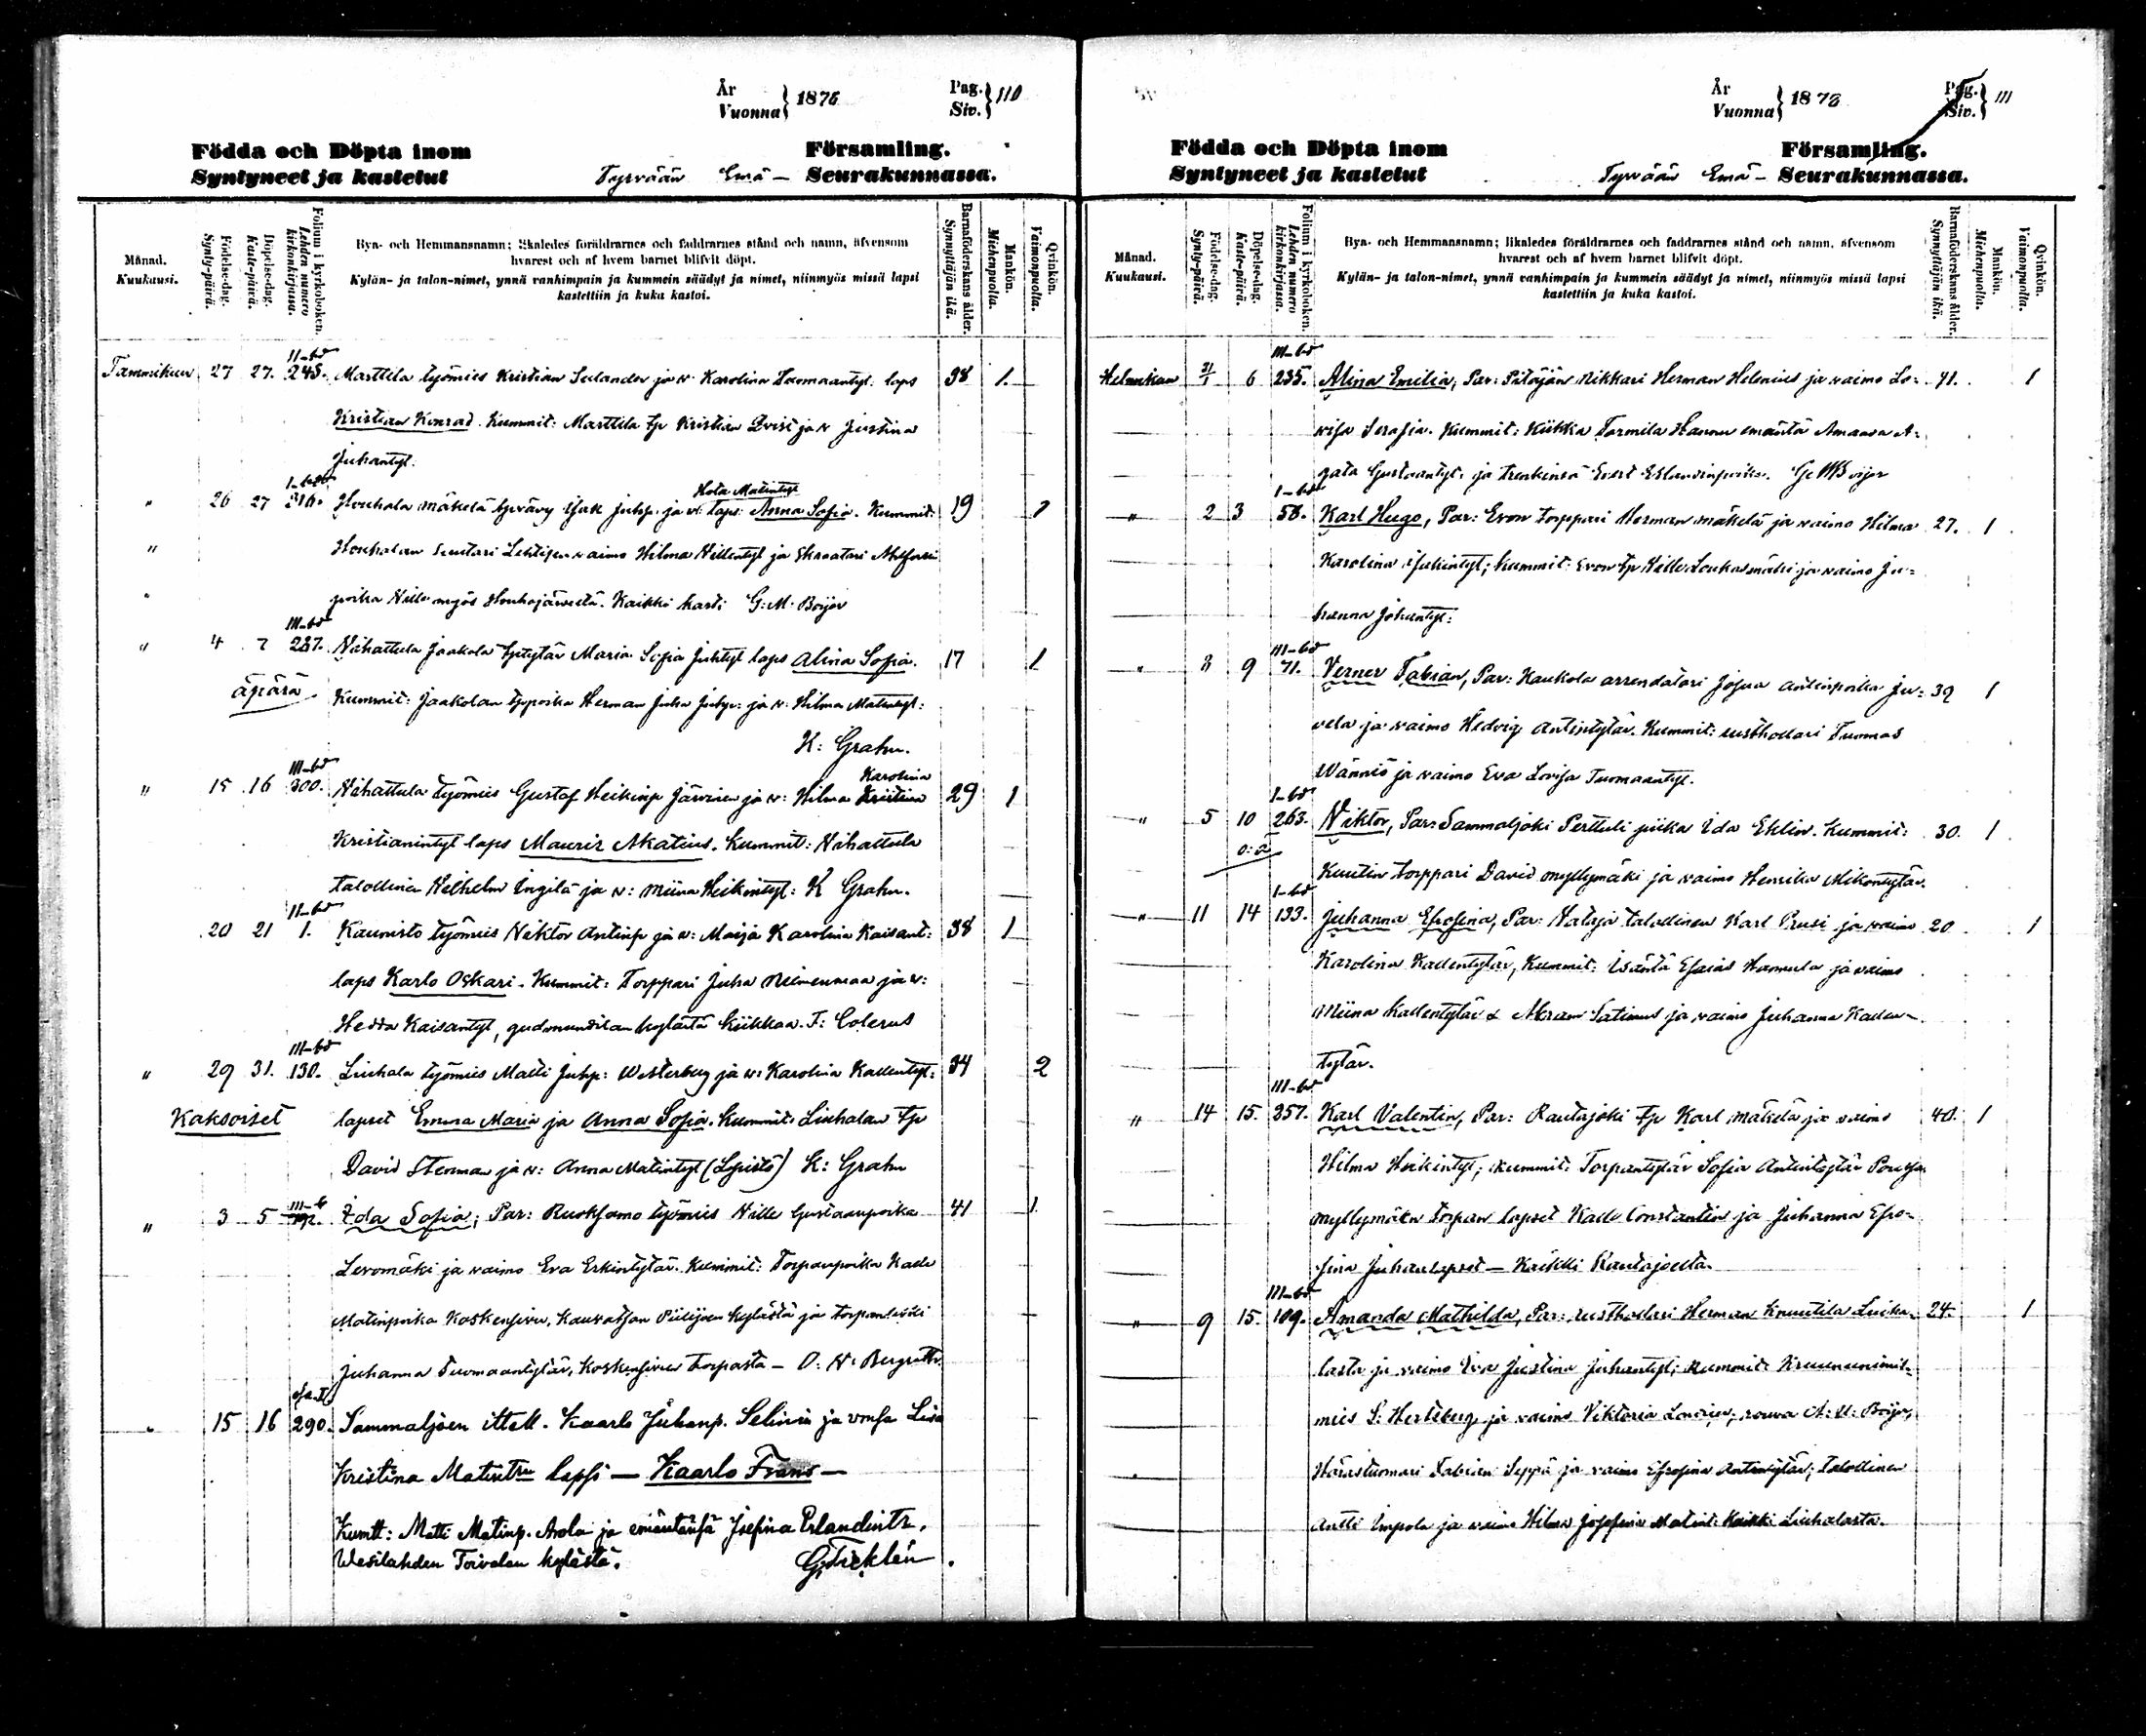 År
Vuonna } 1876 Pag.
Siv. } 110
Födda och Döpta inom Församling.
Syntyneet ja kastetut Tyrvään Emä- Seurakunnassa.
Månad.
Kuukausi.
Födelse-dag.
Synty-päivä.
Döpelse-dag.
Kaste-päivä.
Folium i kyrkoboken.
Lehden numero
kirkonkirjassa.
Bya- och Hemmansnamn; likaledes föräldrarnes och faddrarnes stånd och namn, äfvensom
hvarest och af hvem barnet blifvit döpt.
Kylän- ja talon-nimet, ynnä vanhimpain ja kummein säädyt ja nimet, niinmyös missä lapsi
kastettiin ja kuka kastoi.
Barnaföderskans ålder.
Synnyttäjän ikä.
Mankön.
Miehenpuolta.
Qvinkön.
Vaimonpuolta.
II-bd
Tammikuu 27 27. 245. Marttila työmies Kristian Selander ja v. Karolina Tuomaantyt. laps 38 1.
Kristian Konrad. Kummit: Marttila tp Kristian Qvist ja v Justina
Juhantyt.
" 26 27 316. Houhala Mäkelä Juhp. ja v: laps: Anna Sofia. Kummit: 19 1
Houhalan Lehtisen vaimo Hilma ja
poika Wille myös Houhajärveltä. Kaikki kasti G: M. Boijer
III-bd
" 4 7 287. Wihattula Jaakola Maria Sofia Juhtyt laps Alina Sofia. 17 1
äpärä Kummit: Jaakolan tpoika Herman Juha Juhp: ja v: Hilma Matintyt:
K: Grahn.
III-bd Karolina
" 15 16 300. Wihattula työmies Gustaf Heikinp Järvinen ja v: Hilma Kristiina 29 1
Kristianintyt laps Mauriz Akatius. Kummit: Wihattula
talollinen Wilhelm Ingilä ja v: Miina Heikintyt: K Grahn.
II-bd
20 21 1. Kaunisto työmies Wiktor Antinp ja v: Maija Karolina Kaisant: 38 1
laps Karlo Oskari. Kummit: Torppari Juha Niinenmaa ja v:
Hedda Kaisantyt, gudmundilan kylästä Kiikkaa. F: Colerus
III-bd
" 29 31. 130. Liuhala työmies Matti Juhp: Westerberg ja v: Karolina Kallentyt: 34 2
Kaksoiset lapset Emma Maria ja Anna Sofia. Kummit: Liuhalan tp
David Stenman ja v: Anna Matintyt (Lepistö) K: Grahn
" 3 5 Ida Sofia; Par: Ruoksamo työmies Wille Gustaanpoika 41 1.
Levomäki ja vaimo Eva Erkintytär. Kummit: Torpanpoika Kalle
Matinpoika Koskensivu, Kauvatsan Piilijoen kylästä ja torpanleski
Juhanna Tuomaantytär, Koskensivun torpasta — O: W: Bergroth.
15 16 290. Sammaljoen ittell. Kaarlo Juhanp. Selinin ja vmsa Lisa
Kristina Matintr lapsi — Kaarlo Frans —
Kumtt: Matti Matinp. Arola ja emäntänsä Josefina Erlandintr,
Wesilahden Toivolan kylästä. G. Ficklén.
År
Vuonna } 1876 Pag.
Siv. } 111
Födda och Döpta inom Församling.
Syntyneet ja kastetut Tyrvään Emä- Seurakunnassa.
Månad.
Kuukausi.
Födelse-dag.
Synty-päivä.
Döpelse-dag.
Kaste-päivä.
Folium i kyrkoboken.
Lehden numero
kirkonkirjassa.
Bya- och Hemmansnamn; likaledes föräldrarnes och faddrarnes stånd och namn, äfvensom
hvarest och af hvem barnet blifvit döpt.
Kylän- ja talon-nimet, ynnä vanhimpain ja kummein säädyt ja nimet, niinmyös missä lapsi
kastettiin ja kuka kastoi.
Barnaföderskans ålder.
Synnyttäjän ikä.
Mankön.
Miehenpuolta.
Qvinkön.
Vaimonpuolta.
III-bd
Helmikuu 31/1 6 235. Alina Emilia, Par: Pitäjän Nikkari Herman Helenius ja vaimo Lo= 41. 1
visa Serafia. Kummit: Kiikka Tormila Hannu emäntä Amanda A=
gata Gustaantyt. ja trenkinsä Evert Erlandinpoika. G: M Boijer
I-bd
" 2 3 58. Karl Hugo, Par: Evon torppari Herman Mäkelä ja vaimo Hilma 27. 1
Karolina Juhintyt; kummit: Evon tp Wille Loukasmäki ja vaimo Ju=
hanna Johantyt:
III-bd
" 3 9 71. Verner Fabian, Par: Kaukola arrendatori Josua Antinpoika Ju= 39 1
vela ja vaimo Hedvig Antintytär. Kummit: rusthollari Tuomas
Wänniö ja vaimo Eva Lovisa Tuomaantyt.
I-bd
" 5 10 263. Wiktor, Par: Sammaljoki Perttuli piika Ida Eklin. Kummit: 30. 1
Kuutin torppari David Myllymäki ja vaimo Henrika Mikontytär.
I-bd
" 11 14 133. Juhanna Efrosina, Par: Nataja talollinen Karl Prusi ja vaimo 20 1
Karolina Kallentytär, Kummit: Isäntä Esaias Hannula ja vaimo
Miina Kallentytär & Abram Satimus ja vaimo Juhanna Kallen-
tytär.
III-bd
" 14 15. 257. Karl Valentin, Par: Rautajoki tp Karl Mäkelä ja vaimo 40. 1
Hilma Heikintyt; kummit: Torpantytär Sofia Antintytär
myllymäen torpan lapset Kalle Constantin ja Juhanna Efro-
sina Juhanlapset — Kaikki Rautajoelta.
III-bd
" 9 15. 109. Amanda Mathilda, Par: rusthollari Herman Knuutila Liuha- 24. 1
lasta ja vaimo Eva Justina Juhantyt; Kummit: Kruununnimis-
mies S: Hertzberg ja vaimo Viktoria rouva A: U: Boijer,
Herastuomari Fabian Seppä ja vaimo Efrosina Antintytär; Talollinen
Antti Impola ja vaimo Hilma Josefina Matint: Kaikki Liuhalasta.